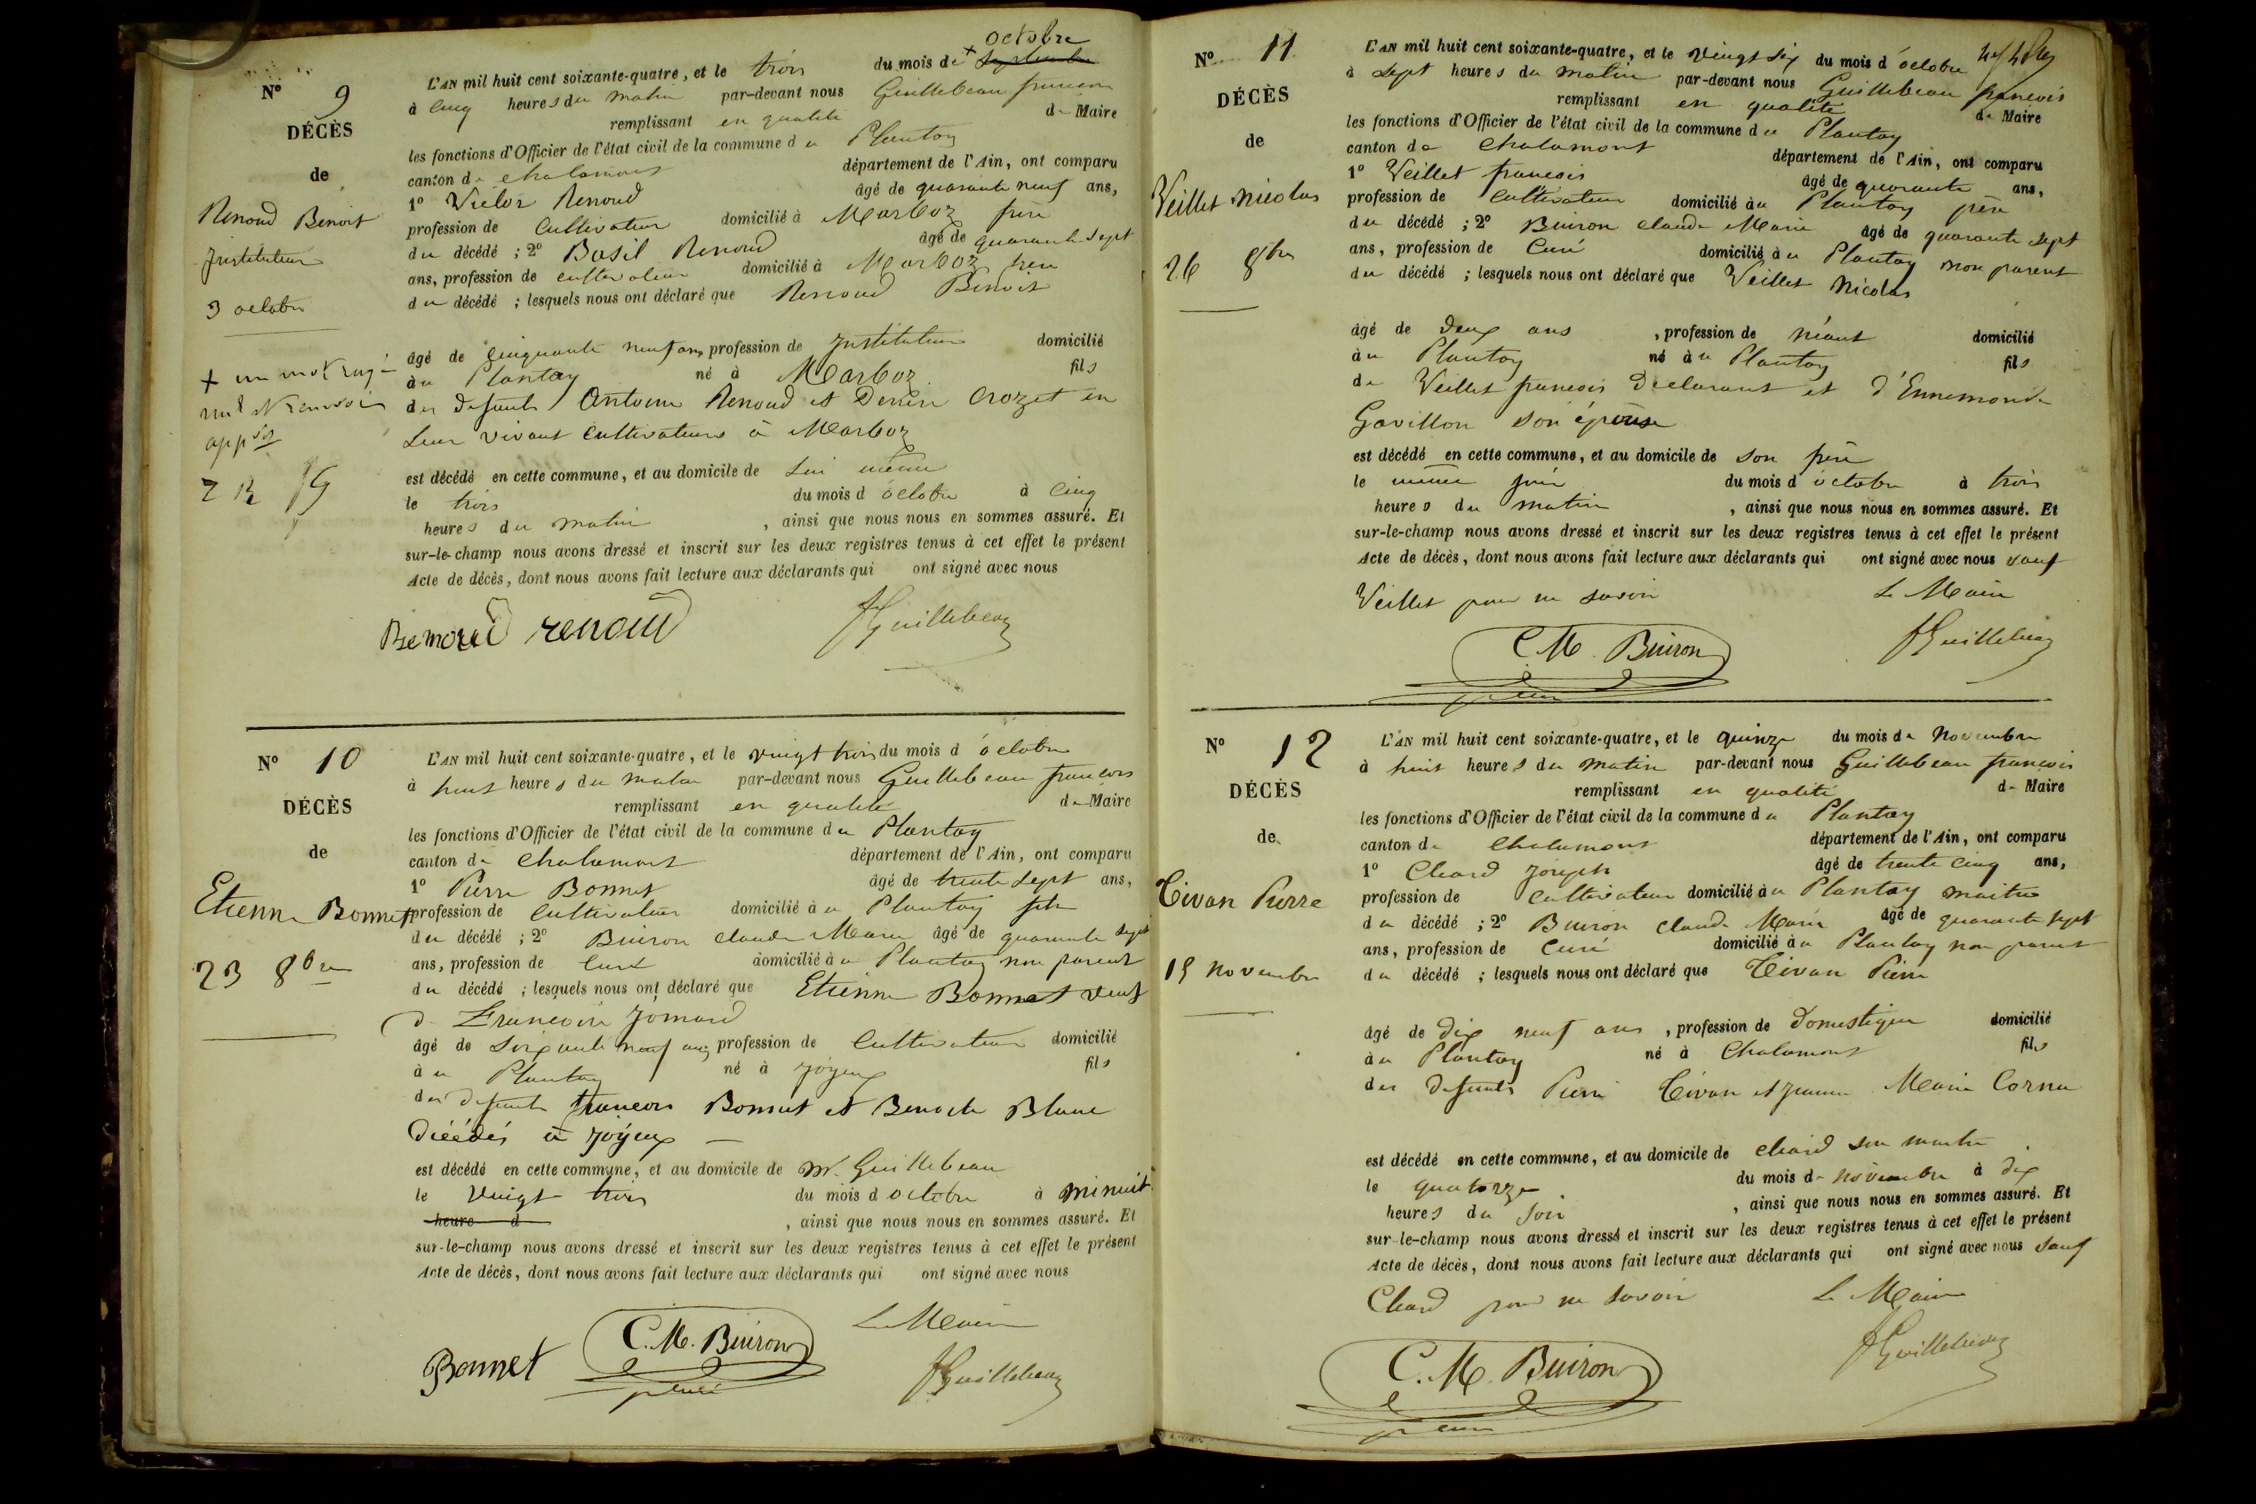 N° 9
DÉCÈS
de
Renoud Benoit
Instituteur
3 octobre
+ un mot rayé
nul
L'AN mil huit cent soixante-quatre, et le trois du mois de + septembre octobre
à cinq heures du matin par-devant nous Guillebeau francois
remplissant en qualité de Maire
les fonctions d'Officier de l'état civil de la commune du Plantay
canton de chalamont département de l'Ain, ont comparu
1° Victor Renoud âgé de quarante neuf ans,
profession de Cultivateur domicilié à Marboz frère
du décédé ; 2° Basil Renoud âgé de quarante sept
ans, profession de cultivateur domicilié à Marboz frère
du décédé ; lesquels nous ont déclaré que Renoud Benoit
âgé de cinquante neuf ans profession de Instituteur domicilié
au Plantay né à Marboz fils
des defunts Antoine Renoud et Crozet en
Leur vivant Cultivateurs à Marboz
est décédé en cette commune, et au domicile de Lui même
le trois du mois d octobre à cinq
heures du matin , ainsi que nous nous en sommes assuré. Et
sur-le-champ nous avons dressé et inscrit sur les deux registres tenus à cet effet le présent
Acte de décès, dont nous avons fait lecture aux déclarants qui ont signé avec nous
renoud
fGuillebeau
N° 10
DÉCÈS
de
Etienne Bonnet
23 8bre
L'AN mil huit cent soixante-quatre, et le vingt trois du mois d octobre
à huit heures du matin par-devant nous Guillebeau francois
remplissant en qualité de Maire
les fonctions d'Officier de l'état civil de la commune du Plantay
canton de Chalamont département de l'Ain, ont comparu
1° Pierre Bonnet âgé de trente sept ans,
profession de Cultivateur domicilié au Plantay fils
du décédé ; 2° Buiron claude Marie âgé de quarante sept
ans, profession de Curé domicilié au Plantay non parent
du décédé ; lesquels nous ont déclaré que Etienne Bonnet veuf
d Francoise Jomard
âgé de soixante neuf ans profession de Cultivateur domicilié
au Plantay né à Joyeux fils
des defunts francois Bonnet et Benoite Blanc
décédés à Joyeux
est décédé en cette commune, et au domicile de Mr. Guillebeau
le vingt trois du mois d octobre à minuit
heure d , ainsi que nous nous en sommes assuré. Et
sur-le-champ nous avons dressé et inscrit sur les deux registres tenus à cet effet le présent
Acte de décès, dont nous avons fait lecture aux déclarants qui ont signé avec nous
Bonnet C. M. Buiron Le Maire
curé fGuillebeau
N° 11
DÉCÈS
de
Veillet Nicolas
26 8bre
L'AN mil huit cent soixante-quatre, et le vingt six du mois d octobre
à sept heures du matin par-devant nous Guillebeau francois
remplissant en qualité de Maire
les fonctions d'Officier de l'état civil de la commune du Plantay
canton de Chalamont département de l'Ain, ont comparu
1° Veillet francois âgé de quarante ans,
profession de Cultivateur domicilié au Plantay père
du décédé ; 2° Buiron claude Marie âgé de quarante sept
ans, profession de Curé domicilié au Plantay non parent
du décédé ; lesquels nous ont déclaré que Veillet Nicolas
âgé de deux ans , profession de néant domicilié
au Plantay né au Plantay fils
de Veillet francois Déclarant et d'Ennemonde
Gavillon son épouse
est décédé en cette commune, et au domicile de son père
le même jour du mois d octobre à trois
heures du matin , ainsi que nous nous en sommes assuré. Et
sur-le-champ nous avons dressé et inscrit sur les deux registres tenus à cet effet le présent
Acte de décès, dont nous avons fait lecture aux déclarants qui ont signé avec nous sauf
Veillet pour ne savoir Le Maire
C. M. Buiron fGuillebeau
curé
N° 12
DÉCÈS
de
Tivan Pierre
15 Novembre
L'AN mil huit cent soixante-quatre, et le quinze du mois de Novembre
à huit heures du matin par-devant nous Guillebeau francois
remplissant en qualité de Maire
les fonctions d'Officier de l'état civil de la commune du Plantay
canton de Chalamont département de l'Ain, ont comparu
1° Chard Joseph âgé de trente cinq ans,
profession de cultivateur domicilié au Plantay maitre
du décédé ; 2° Buiron claude Marie âgé de quarante sept
ans, profession de Curé domicilié au Plantay non parent
du décédé ; lesquels nous ont déclaré que Tivan Pierre
âgé de dix neuf ans , profession de Domestique domicilié
au Plantay né à Chalamont fils
des defunts Pierre Tivan et Jeanne Marie Cornu
est décédé en cette commune, et au domicile de Chard son maitre
le quatorze du mois de novembre à dix
heures du soir , ainsi que nous nous en sommes assuré. Et
sur-le-champ nous avons dressé et inscrit sur les deux registres tenus à cet effet le présent
Acte de décès, dont nous avons fait lecture aux déclarants qui ont signé avec nous sauf
Chard pour ne savoir Le Maire
C. M. Buiron fGuillebeau
curé